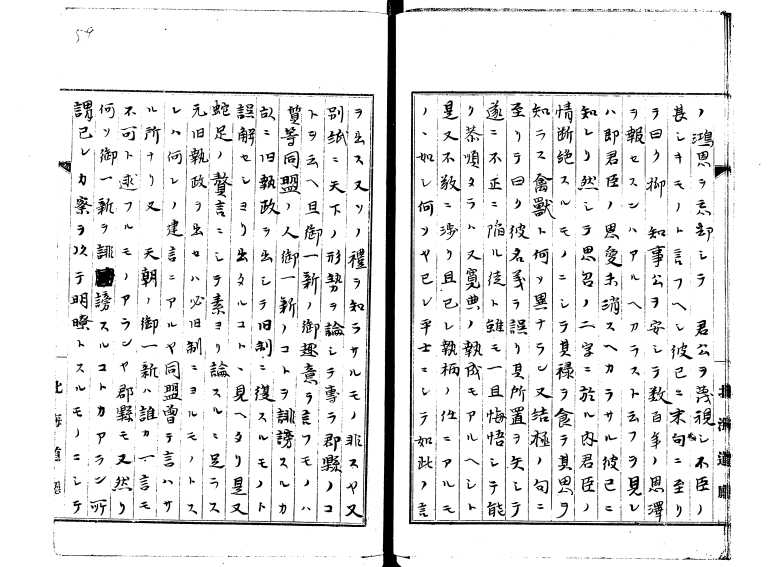 ノ鴻恩ヲ忘却シテ 君公ヲ蔑視シ不臣ノ
甚シキモノト言フヘシ彼已ニ末句ニ至リ
テ曰ク抑 知事公ヲ安シテ数百年ノ恩澤
ヲ報セスンハアルヘカラスト云フヲ見レ
ハ即君臣ノ恩愛未消スヘカラサル彼已ニ
知レリ然シテ思召ノ二字ニ於ル内君臣ノ
情断絶スルモノニシテ其禄ヲ食テ其恩ヲ
知ラス禽獣ト何ソ異ナラン又結極ノ句ニ
至リテ曰ク彼名義ヲ誤リ其所置ヲ失シテ
遂ニ不正ニ陥ル徒ト雖モ一旦悔悟シテ能
ク恭順タラハ又寛典ノ執成モアルヘシト
是又不敬ニ渉リ且已レ執柄ノ任ニアルモ
ノヽ如シ何ソヤ已レ平士ニシテ如此ノ言
ヲ出ス又ソノ禮ヲ知ラサルモノ非スヤ又
別紙ニ天下ノ形勢ヲ論シテ専ラ郡縣ノコ
トヲ云ヘ旦御一新ノ御趣意ヲ言フモノハ
賛等同盟ノ人御一新ノコトヲ誹謗スルカ
故ニ旧執政ヲ出シテ旧制ニ復スルモノト
誤解セシヨリ出タルコトヽ見ヘタリ是又
蛇足ノ贅言ニシテ素ヨリ論スルニ足ラス
元旧執政ヲ出セハ必旧制ニヨルモノトス
レハ何レノ建言ニアルヤ同盟曽テ言ハサ
ル所ナリ又 天朝ノ御一新ハ誰カ一言モ
不可ト述フルモノアランヤ郡縣モ又然リ
何ソ御一新ヲ誹謗スルコトカアラン所
謂已レカ察ヲ以テ明瞭トスルモノニシテ
北海道廳
59